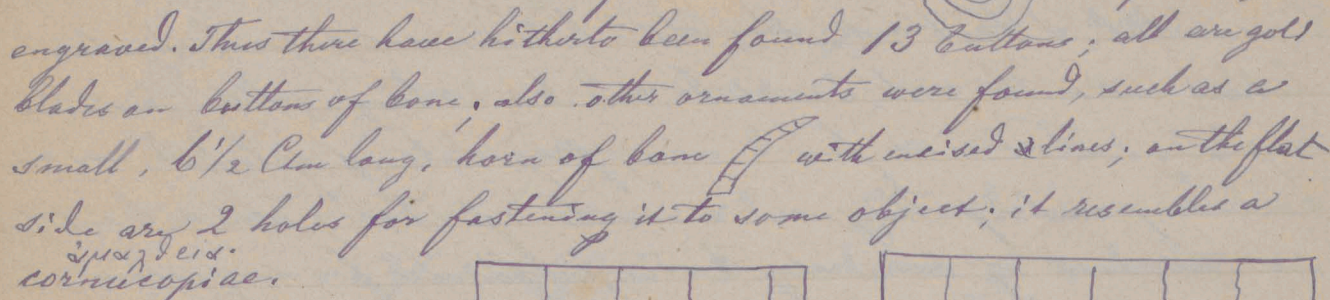 engraved. Thus there have hitherto been found 13 buttons; all are gold
blades on buttons of bone; also other ornaments were found, such as a
small, 6½ Ctm long, horn of bone with incised lines; on the flat
side are 2 holes for fastening it to some object; it resembles a
cornucopiae.